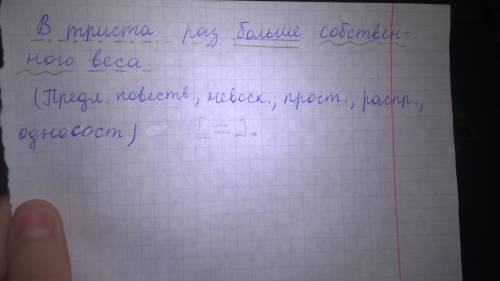 В триста раз больше собствен-
ного веса
(Предл. повеств., невоск., прост., распр.,
односост.) [=].